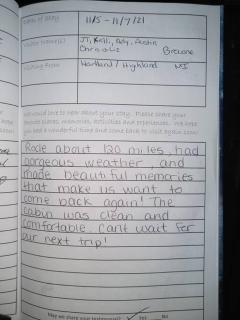 Dates of Stay
11/5 - 11/7/21
Visitor Name(s)
JT, Kelli, Ady, Austin
Browne
Visiting From
Hartland / Highland MI
We would love to hear about your stay. Please share your
favorite places, memories, activities and experiences. We hope
you had a wonderful time and come back to visit again soon!
Rode about 120 miles, had
gorgeous weather, and
made beautiful memories
that make us want to
come back again! The
cabin was clean and
comfortable. Can't wait for
our next trip!
May we share your testimonial?
Yes
No